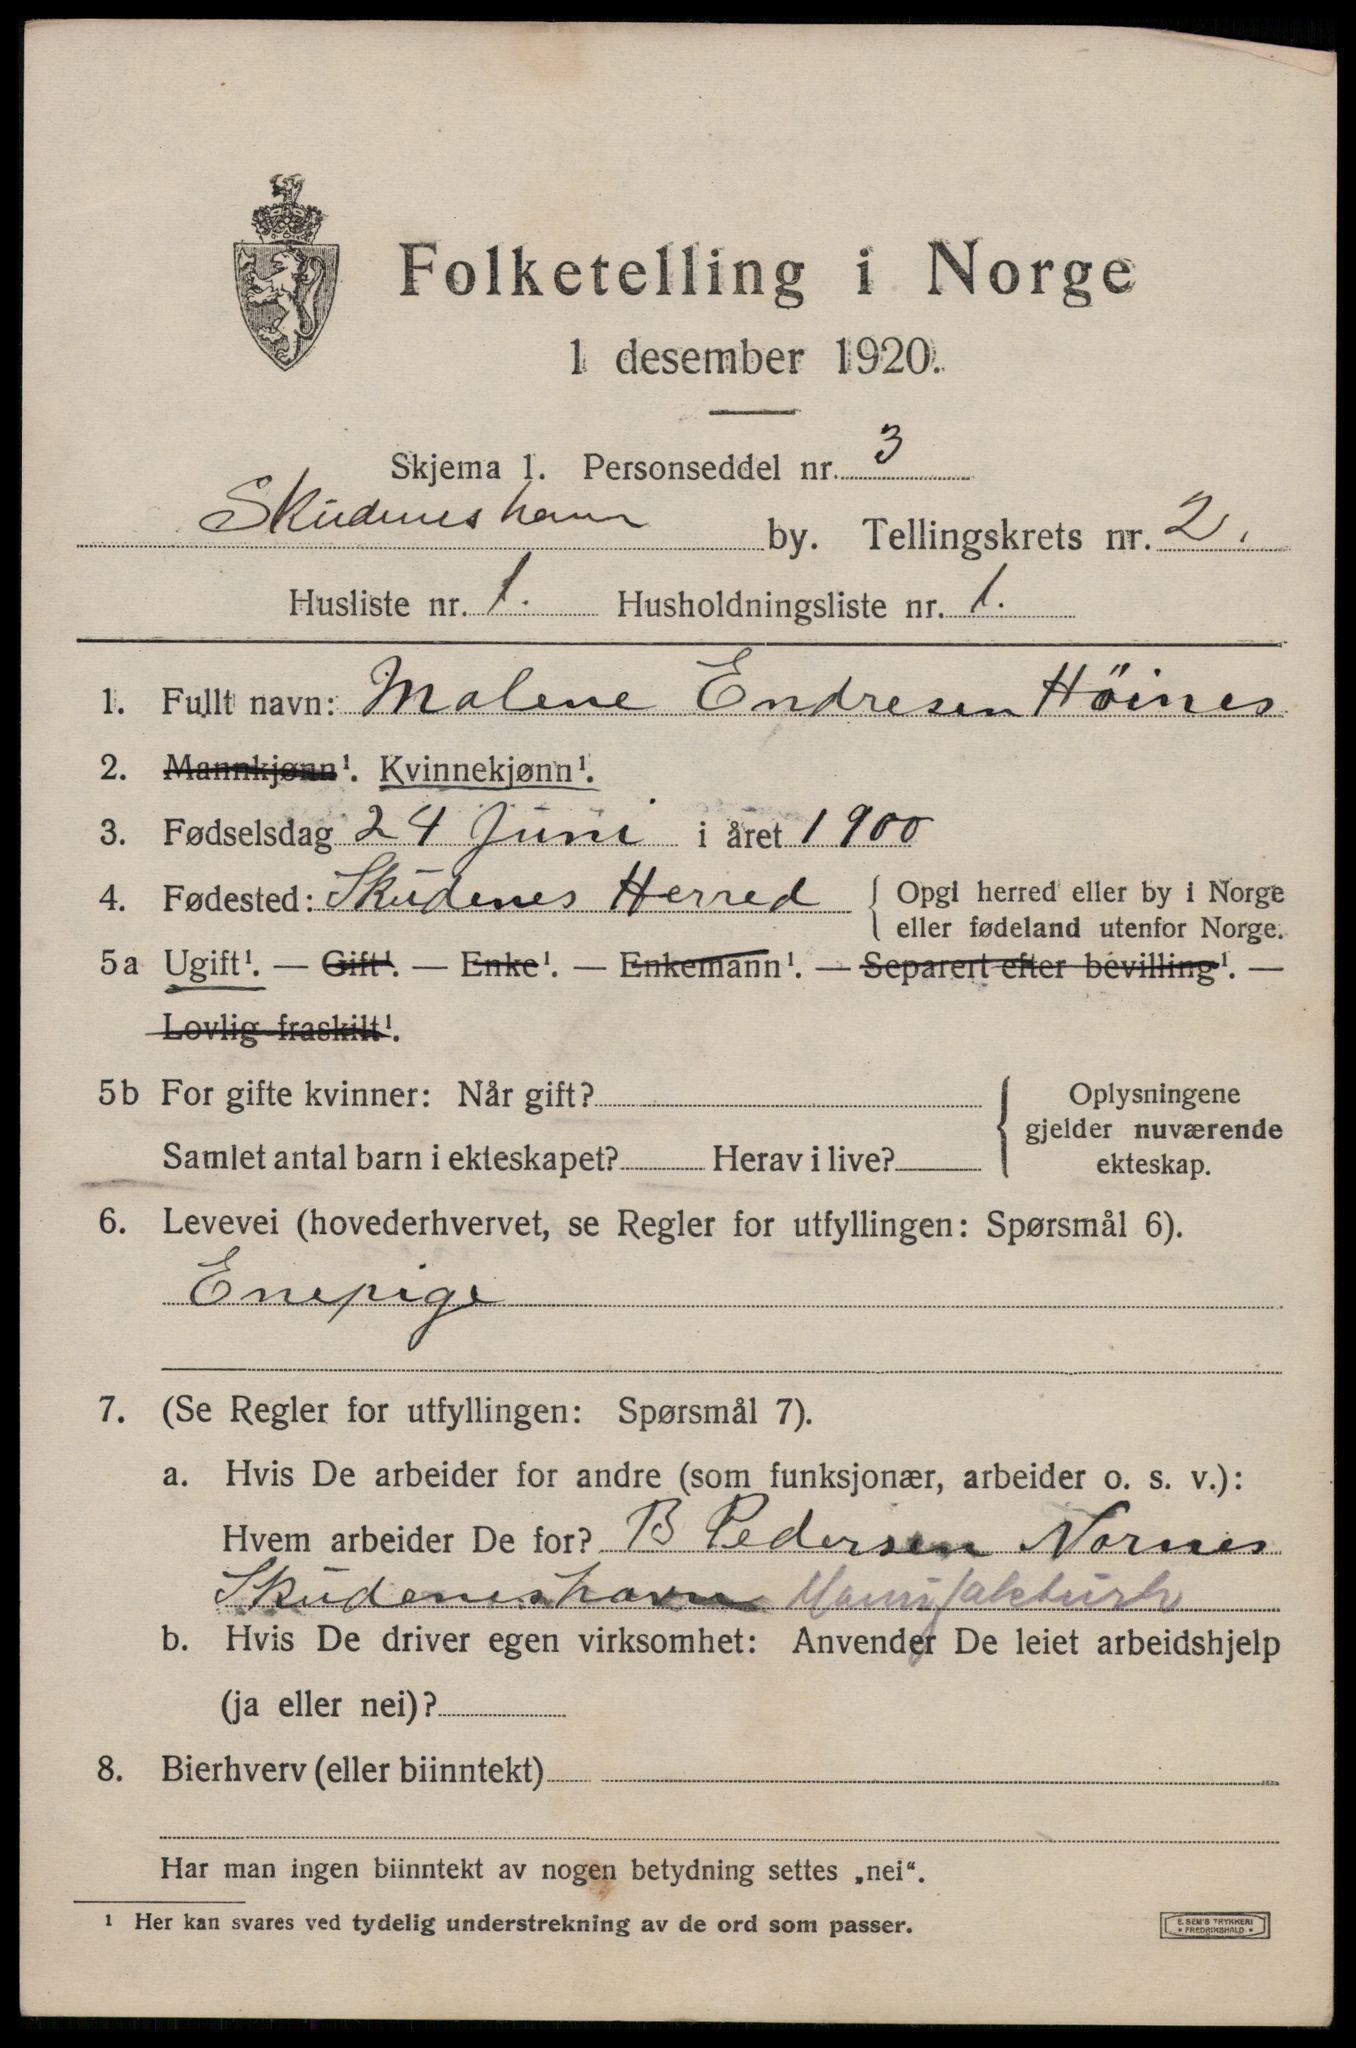 Folketelling i Norge
1 desember 1920.
Skjema 1. Personseddel nr. 3
Skudeneshavn by. Tellingskrets nr. 2.
Husliste nr. 1. Husholdningsliste nr. 1.
1. Fullt navn: Malene Endresen Höines
2. Mannkjønn¹. Kvinnekjønn¹.
3. Fødselsdag 24 Juni i året 1900
4. Fødested: Skudenes Herred { Opgi herred eller by i Norge
eller fødeland utenfor Norge.
5a Ugift¹. — Gift¹. — Enke¹. — Enkemann¹. — Separert efter bevilling¹. —
Lovlig fraskilt¹.
5b For gifte kvinner: Når gift? { Oplysningene
gjelder nuværende
Samlet antal barn i ekteskapet? Herav i live? ekteskap.
6. Levevei (hovederhvervet, se Regler for utfyllingen: Spørsmål 6).
Enepige
7. (Se Regler for utfyllingen: Spørsmål 7).
a. Hvis De arbeider for andre (som funksjonær, arbeider o. s. v.):
Hvem arbeider De for? B Pedersen Nornes
Skudeneshavn Manufakturh
b. Hvis De driver egen virksomhet: Anvender De leiet arbeidshjelp
(ja eller nei)?
8. Bierhverv (eller biinntekt)
Har man ingen biinntekt av nogen betydning settes „nei“.
¹ Her kan svares ved tydelig understrekning av de ord som passer.
E. SEM'S TRYKKERI
* FREDRIKSHALD *